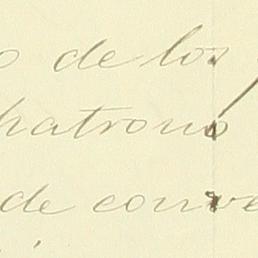 o de los
patrono
de conve